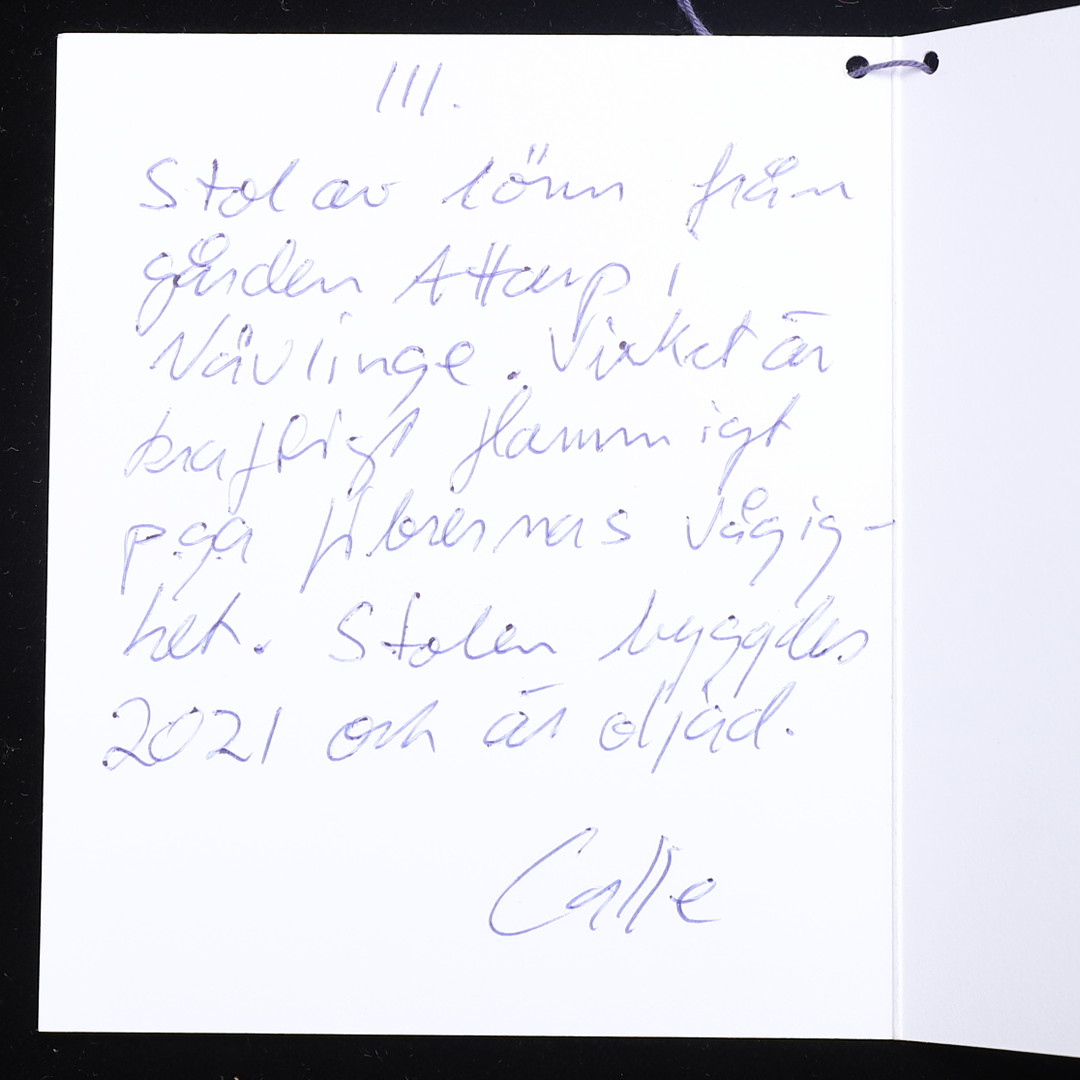 III.
Stol av lönn från
gården Attarp i
Nävlinge. Virket är
kraftigt flammigt
pga fibrernas vågig-
het. Stolen byggdes
2021 och är oljad.
Calle